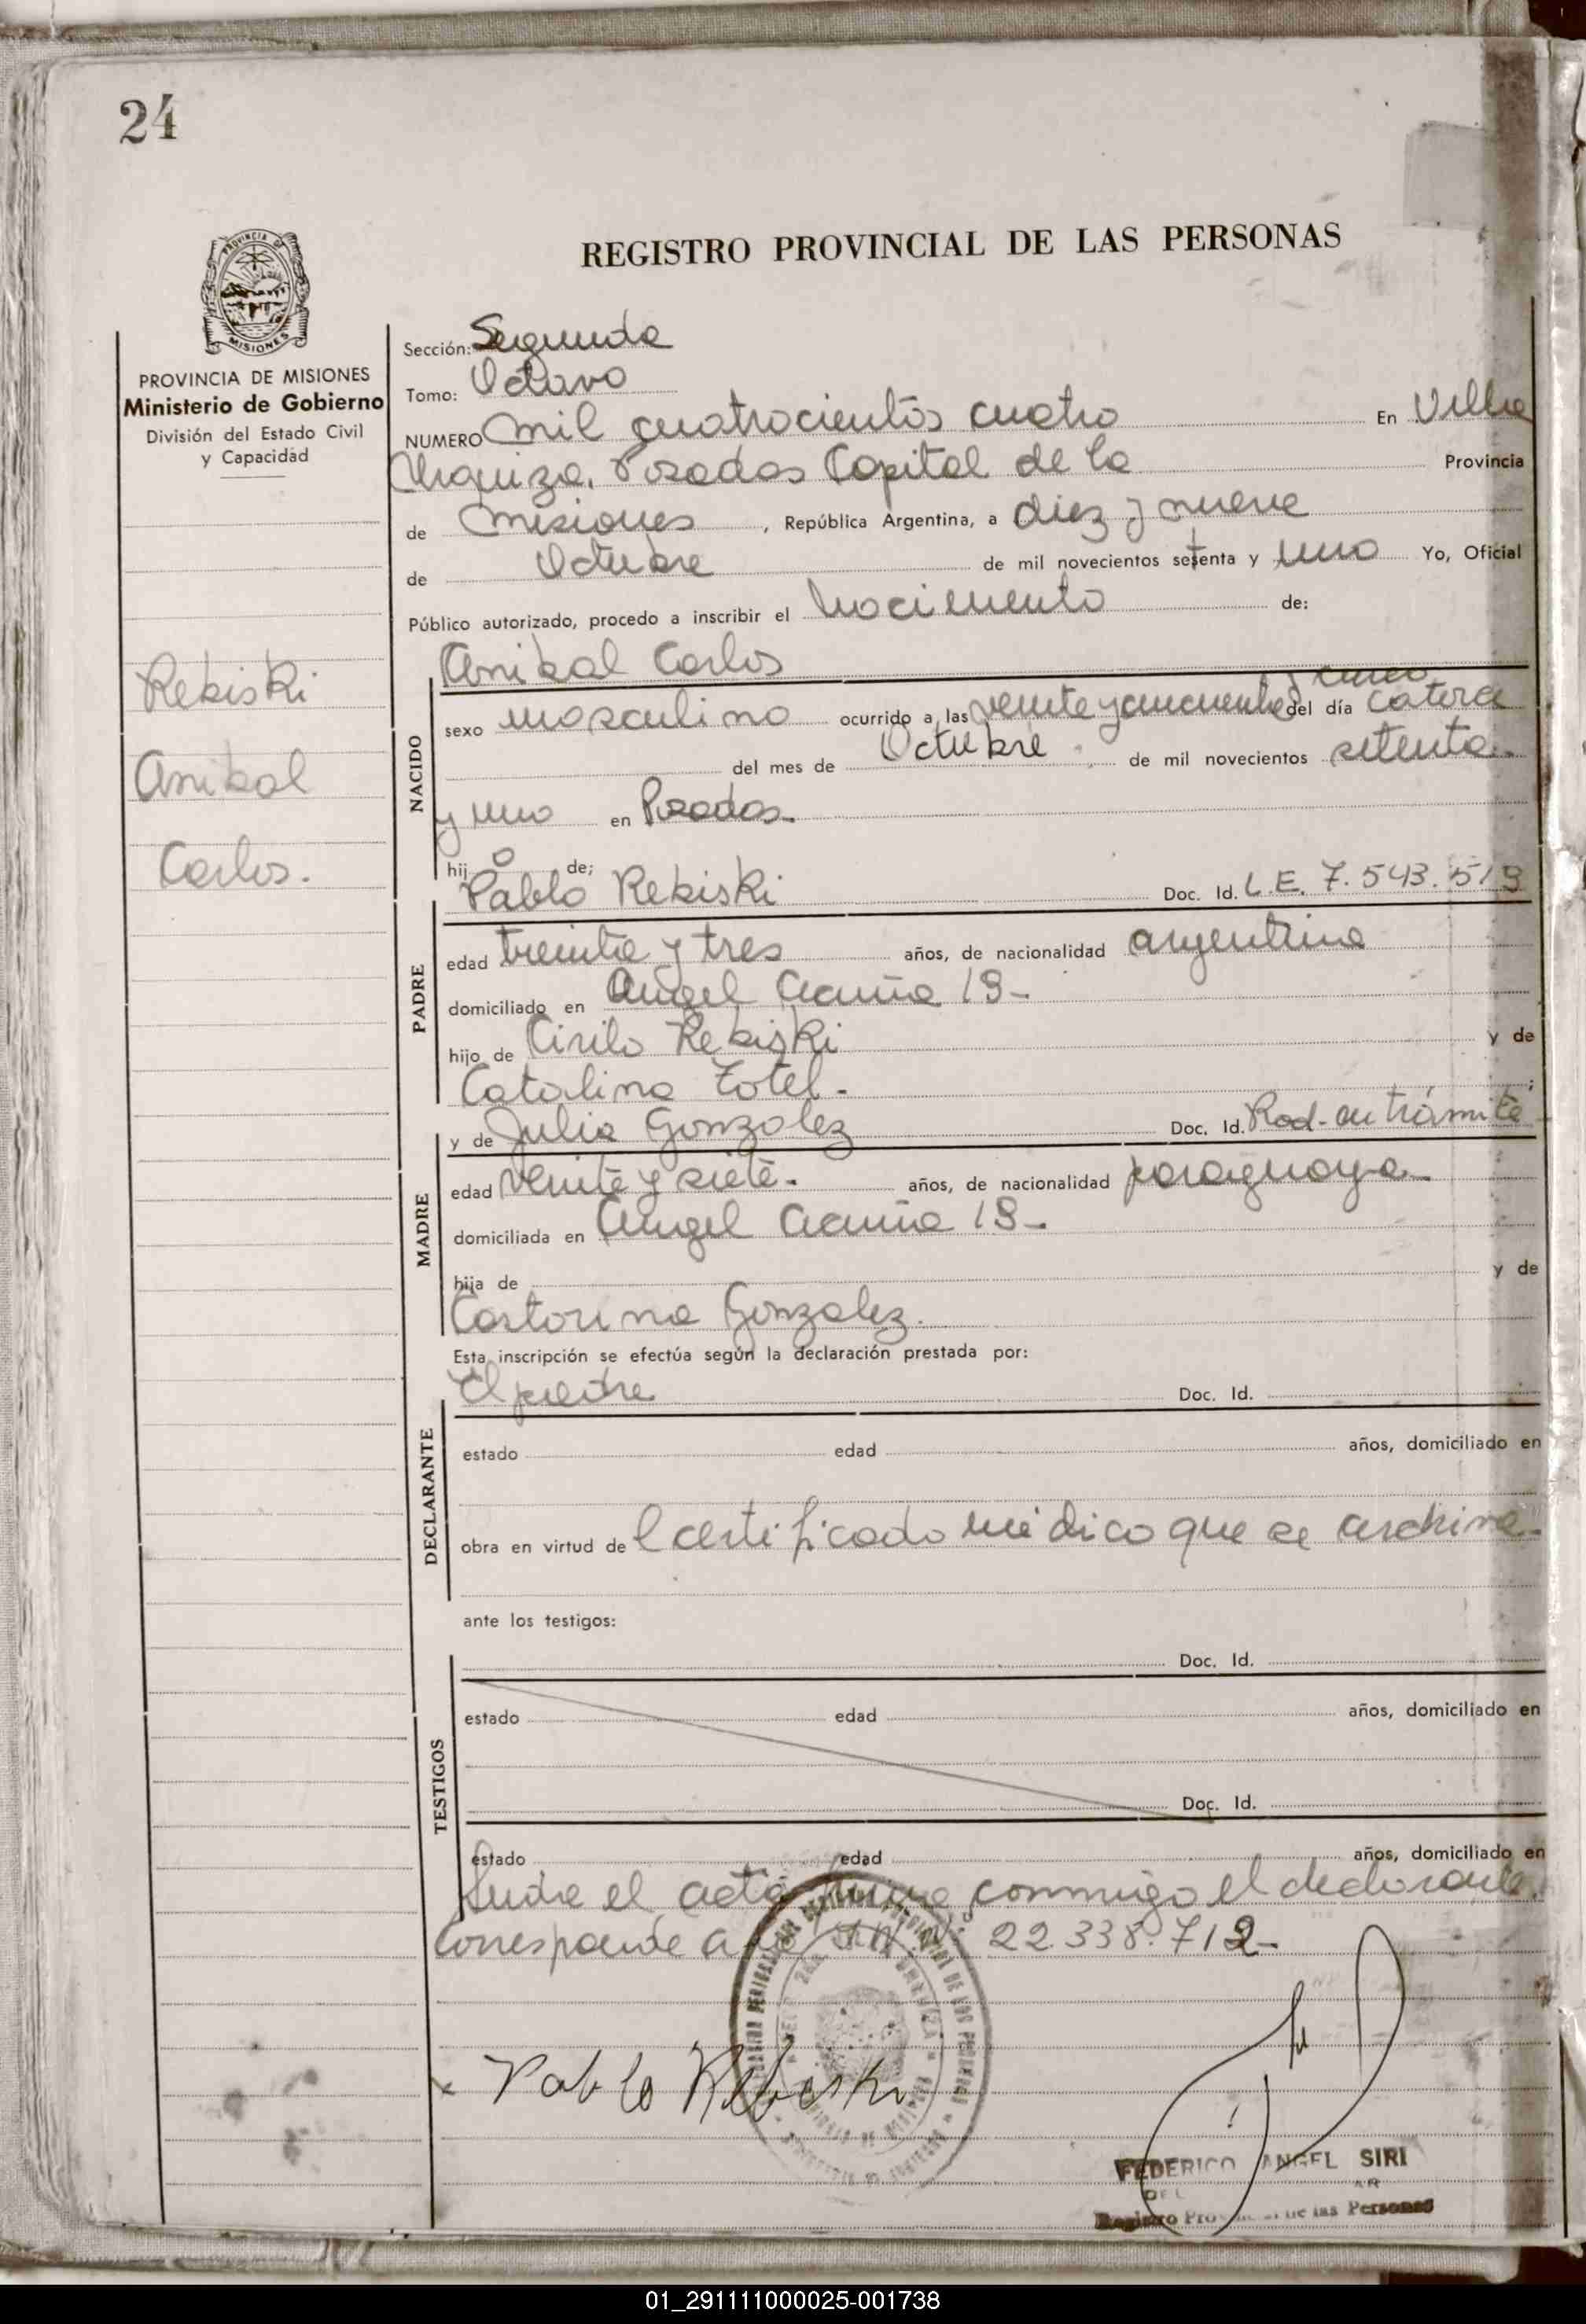 24
PROVINCIA DE
MISIONES
REGISTRO PROVINCIAL DE LAS PERSONAS
PROVINCIA DE MISIONES
Ministerio de Gobierno
División del Estado Civil
y Capacidad
Rekiski
Anibal
Carlos.
Sección: Segunda
Tomo: Octavo
NUMERO Mil cuatrocientos cuatro En Villa
Urquiza, Posadas Capital de la Provincia
de Misiones, República Argentina, a diez y nueve
de Octubre de mil novecientos setenta y uno Yo, Oficial
Público autorizado, procedo a inscribir el Nacimiento de:
Anibal Carlos
NACIDO
y cinco
sexo masculino ocurrido a las veinte y cincuenta del día catorce
del mes de Octubre de mil novecientos setenta
y uno en Posadas.
hijo de;
Pablo Rekiski Doc. Id. L.E. 7.543.519
PADRE
edad treinta y tres años, de nacionalidad argentina
domiciliado en Angel Acuña 19-
hijo de Cirilo Rekiski y de
Catalina Totel.
y de Julia Gonzalez Doc. Id. Rad. en trámite
MADRE
edad veinte y siete. años, de nacionalidad paraguaya
domiciliada en Angel Acuña 19-
hija de y de
Castorina Gonzalez.
Esta inscripción se efectúa según la declaración prestada por:
El padre Doc. Id.
DECLARANTE
estado edad años, domiciliado en
obra en virtud de l certificado médico que se archiva.
ante los testigos:
Doc. Id.
TESTIGOS
estado edad años, domiciliado en
Doc. Id.
estado edad años, domiciliado en
el acta firma conmigo el declarante.
Corresponde a 22.338.712-
Pablo Rebiski
FEDERICO ANGEL SIRI
Registro de las Personas
01_291111000025-001738